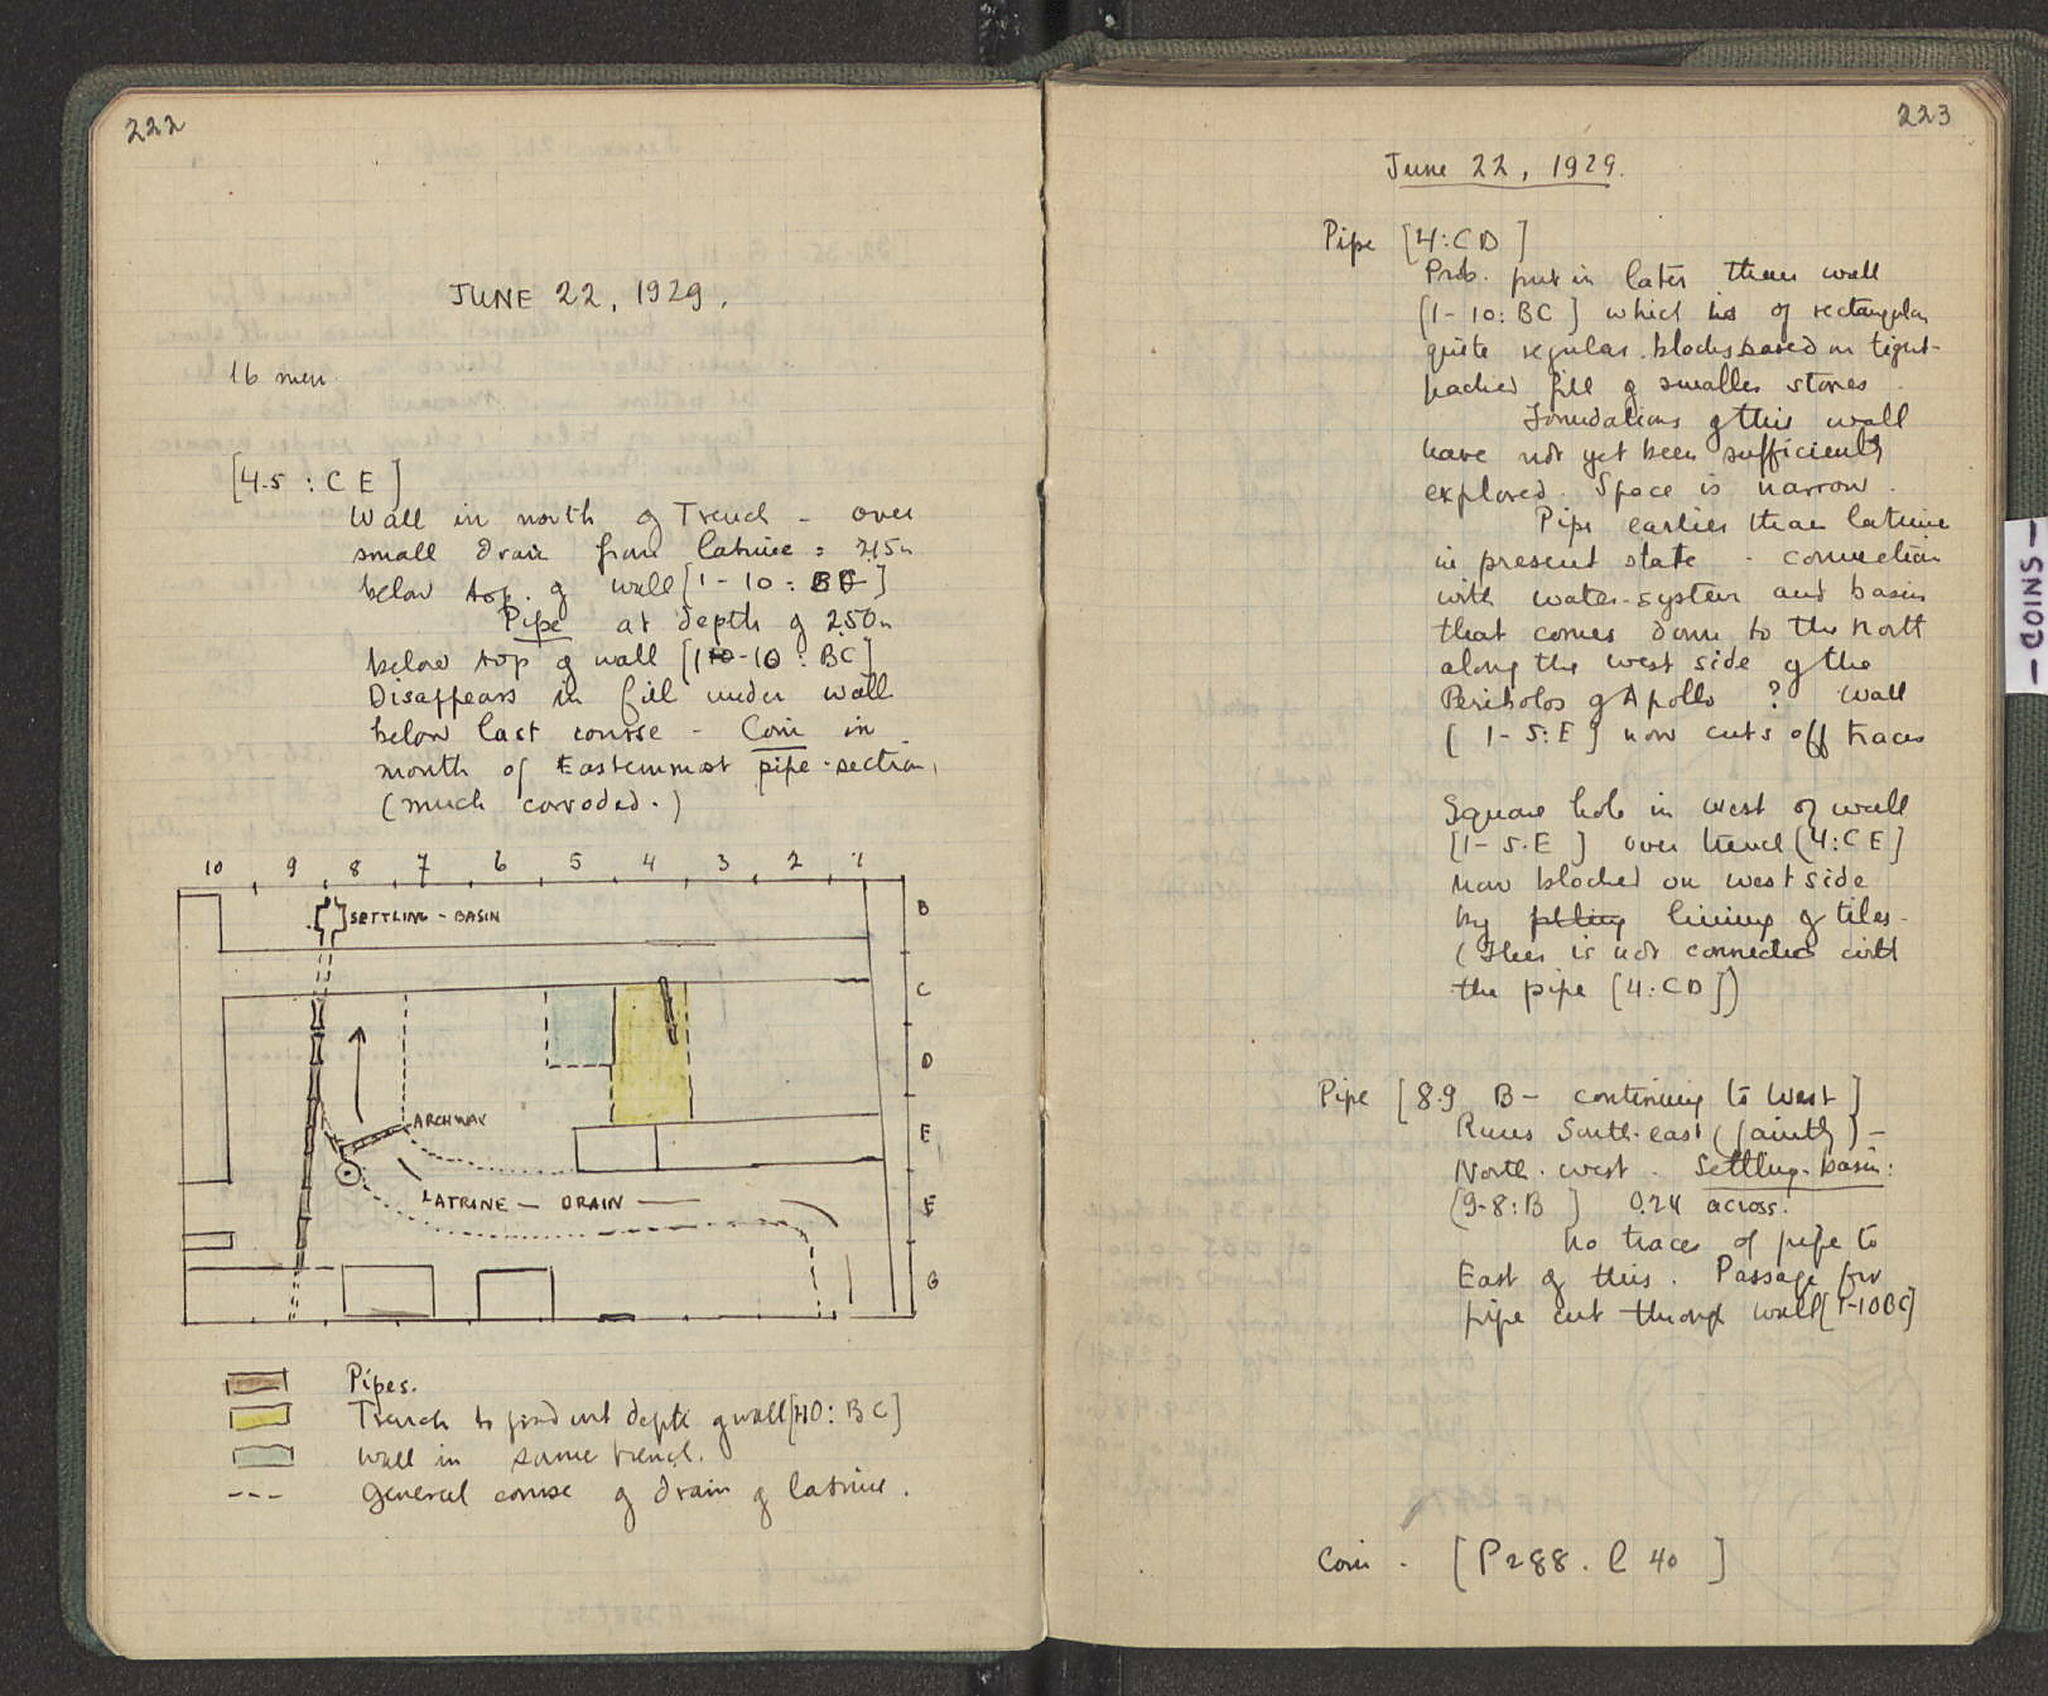 222
JUNE 22, 1929.
16 men
[4-5 : C E]
Wall in north of Trench - over
small drain from latrine = 2.15m
below top of wall [1-10 : BC]
Pipe at depth of 2.50m
below top of wall [1-10 : BC]
Disappears in fill under wall
below last course - Coin in
mouth of Easternmost pipe-section,
(much corroded.)
10 9 8 7 6 5 4 3 2 1
SETTLING - BASIN
B
C
D
ARCHWAY
E
LATRINE - DRAIN
F
G
Pipes.
Trench to find out depth of wall [1-10: BC]
Wall in same trench.
General course of drain of latrine.
223
June 22, 1929.
Pipe [4:CD]
Prob. put in later than wall
[1-10: BC] which is of rectangular
quite regular blocks based on tight-
packed fill of smaller stones
Foundations of this wall
have not yet been sufficiently
explored. Space is narrow.
Pipe earlier than latrine
in present state - connection
with water-system and basin
that comes down to the north
along the west side of the
Peribolos of Apollo ? Wall
[1-5:E] now cuts off traces
Square hole in west of wall
[1-5.E] over trench [4:CE]
now blocked on west side
by lining of tiles -
(This is not connected with
the pipe [4:CD])
Pipe [8.9 B - continuing to West]
Runs South-east (faintly) -
North-west. Settling-basin:
[9-8:B] 0.24 across.
No traces of pipe to
East of this. Passage for
pipe cut through wall [1-10BC]
Coin - [P288. l 40]
- COINS -